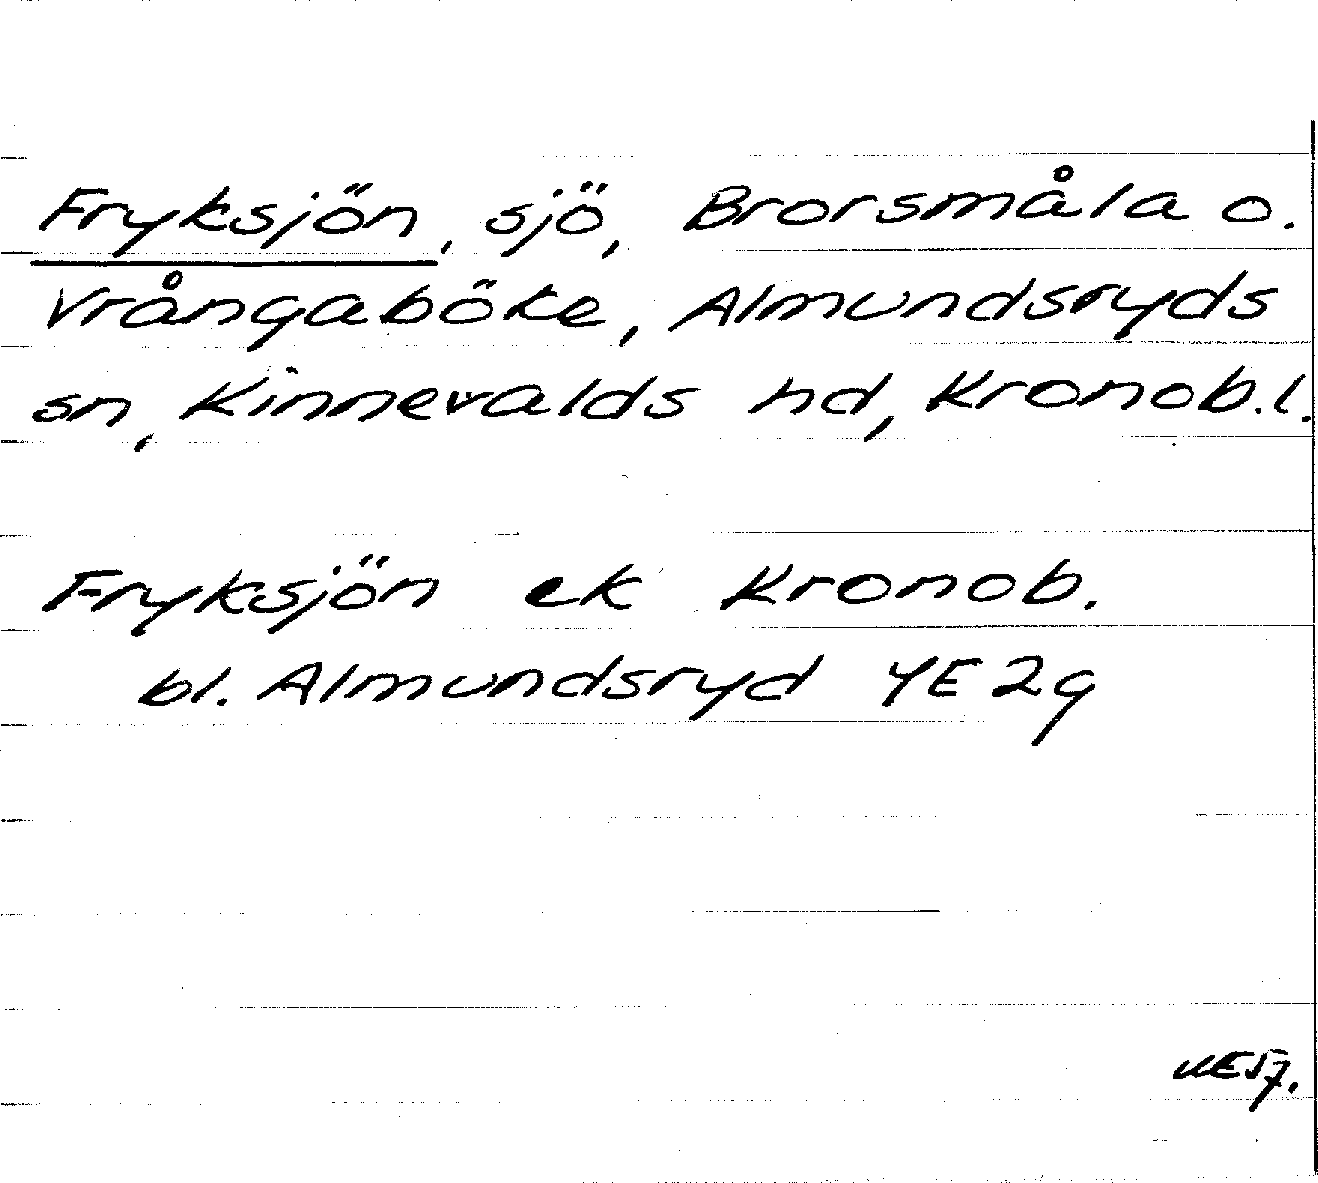 Fryksjön, sjö, Brorsmåla o.
Vrångaböke, Almundsryds
sn, Kinnevalds hd, Kronob.l.
Fryksjön ek Kronob.
bl. Almundsryd YE2g